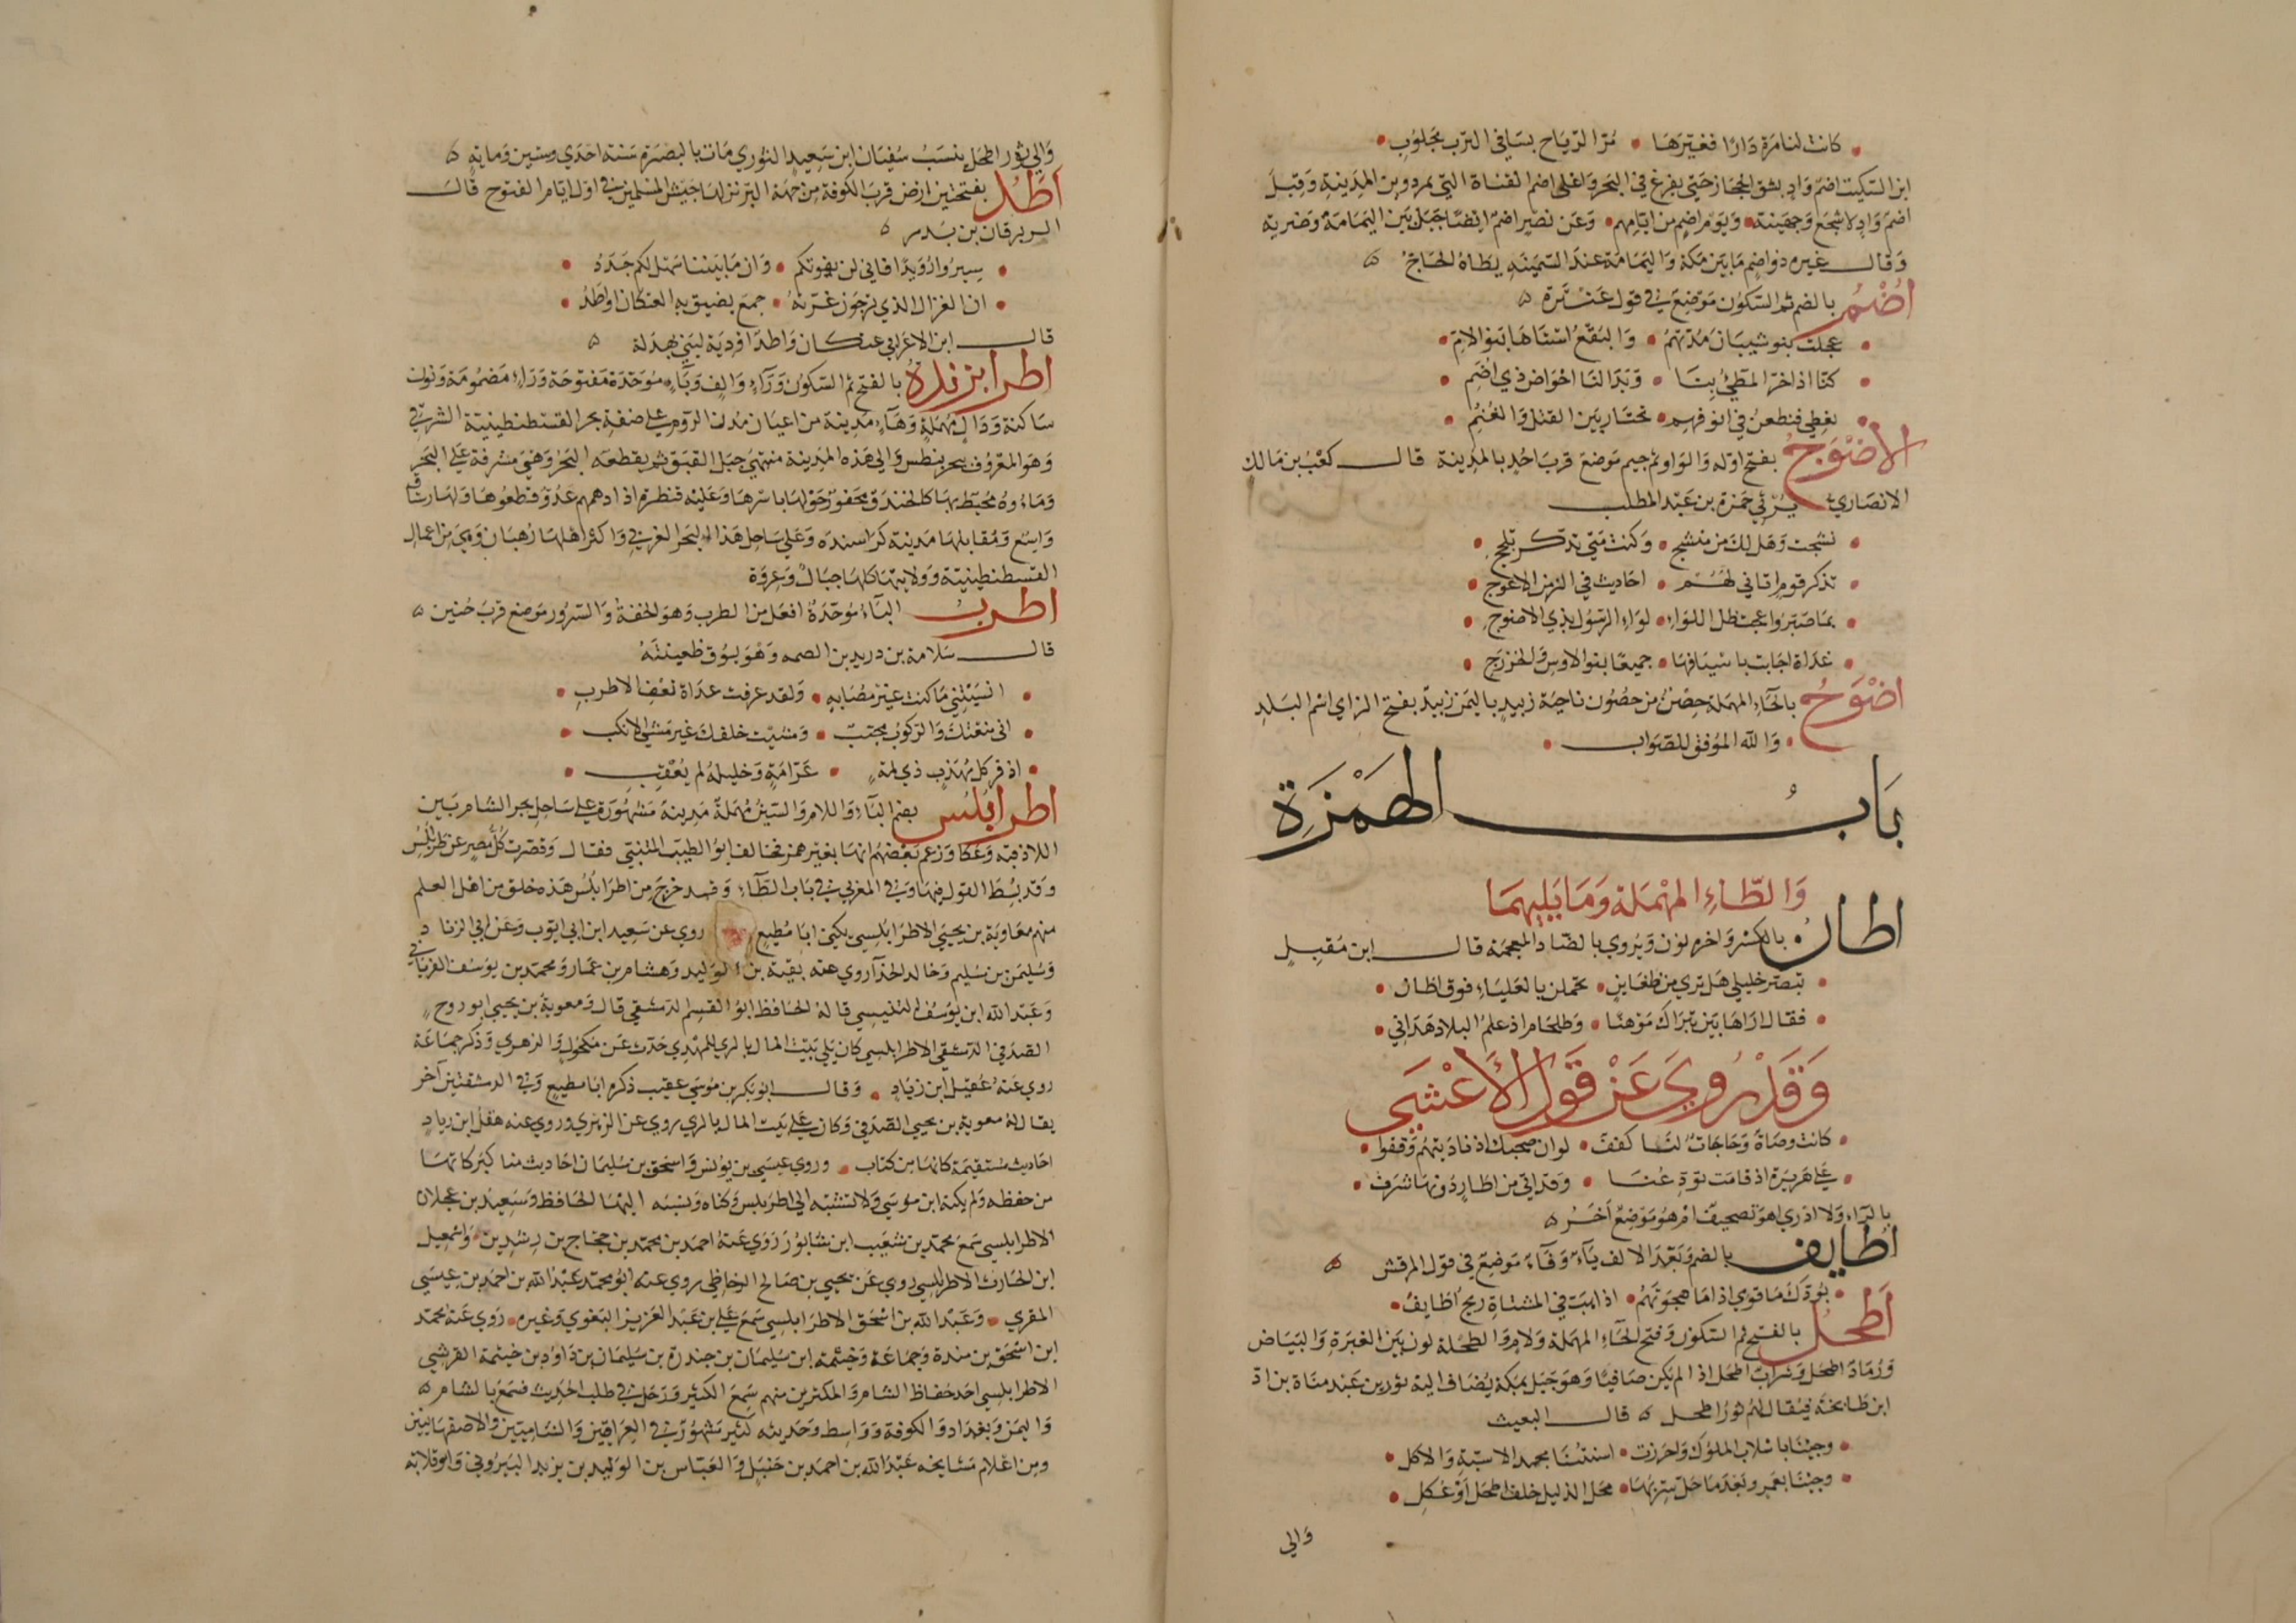 كانت لنا مرة دارا فغيرها • مر الرياح بسافي الترب مجلوب •
ابن السكيت اضم واد بشق الحجاز حتى يفرغ في البحر واعلى اضم القناة التي تمر دوين المدينة وقيل
اضم واد لاشجع وجهينة • ويوم اضم من ايامهم • وعن نصر اضم ايضا جبل بين اليمامة وضرية
وقال غيره ذو اضم ما بين مكة واليمامة عند السمينه يطاه الحاج ه
اُضُمُ بالضم ثم السكون موضع في قول عنترة ه
• عجلت بنو شيبان مدتهم • والبقع استاها بنو الام •
• كنا اذا خر المطي بنا • وبدا لنا احواض ذي اضم •
• نعطي فنطعن في انوفهم • نختار بين القتل والغنم •
الاضوج بفتح اوله والواو ثم جيم موضع قرب احد بالمدينة قال كعب بن مالك
الانصاري يرثي حمزة بن عبد المطلب
• نشجت وهل لك من منشج • وكنت متى تدكر تلجج •
• تذكر قوم اتاني لهم • احاديث في الزمن الاعوج •
• بما صبروا تحت ظل اللواء • لواء الرسول بذي الاضوج •
• غداة اجابت باسيافها • جميعا بنو الاوس والخزرج •
اضوح بالحاء المهملة حصن من حصون ناحية زبيد باليمن زبيد بفتح الزاي اسم البلد
• والله الموفق للصواب •
باب الهمزة
والطاء المهملة وما يليهما
اطان بالكسر واخره نون ويروي بالضاد المعجمة قال ابن مقبل
• تبصر خليلي هل تري من ظعاين • تحملن بالعلياء فوق اطان •
• فقال اراها بين تبراك موهنا • وطلحام اذ علم البلاد هداني •
وقد روي عن قول الاعشي
• كانت وصاة وحاجات لنا كفف • لو ان صحبك اذ ناديتهم وقفوا •
• علي هريرة اذ قامت تودعنا • وقد اتي من اطار دونها شرف •
بالراء ولا ادري اهو تصحيف ام هو موضع اخر ه
اطايف بالضم وبعد الالف ياء وفاء موضع في قول المرقش ه
• بودك ما قومي اذا ما هجوتهم • اذا هبت في المشتاة ريح اطايف •
اطحل بالفتح ثم السكون وفتح الحاء المهملة ولام والطحلة لون بين الغبرة والبياض
ورماد اطحل وشراب اطحل اذا لم يكن صافيا وهو جبل بمكة يضاف اليه ثور بن عبد مناة بن اد
ابن طابخة فيقال له ثور اطحل ه قال البعيث
• وجينا باسلاب الملوك واحرزت • اسنتنا مجد الاسنة والاكل •
• وجينا بعمرو بعد ما حل سربها • محل الذليل خلف اطحل او عكل •
والي
والي ثور اطحل ينسب سفيان ابن سعيد الثوري مات بالبصرة سنة احدي وستين وماية ه
اطد بفتحتين ارض قرب الكوفة من جهة البر نزلها جيش المسلمين في اول ايام الفتوح قال
الزبرقان بن بدر ه
• سيروا رويدا فاني لن يفوتكم • وان ما بيننا سهل لكم جدد •
• ان الغزال الذي ترجون غرته • جمع يضيق به العتكان او اطد •
قال ابن الاعرابي عتكان واطد اودية لبني بهدلة ه
اطرابزندة بالفتح ثم السكون وراء والف وباء موحدة مفتوحة وزاء مضمومة ونون
ساكنة ودال مهملة وهاء مدينة من اعيان مدن الروم علي ضفة بحر القسطنطينية الشرقي
وهو المعروف ببحر بنطس والي هذه المدينة منتهي جبل القبق ثم يقطعه البحر وهي مشرفة علي البحر
وماءوه محيط بها كالخندق محفور حولها باسرها وعليه قنطرة اذا دهمهم عدو قطعوها ولها رستاق
واسع ومقابلها مدينة كراسنده وعلي ساحل هذا البحر الغربي واكثر اهلها رهبان وهي من اعمال
القسطنطينية وولايتها كلها جبال وعرة
اطرب الباء موحدة افعل من الطرب وهو الخفة والسرور موضع قرب حنين ه
قال سلامة بن دريد بن الصمه وهو يسوق ظعينته
• انسيتني ما كنت غير مصابه • ولقد عرفت غداة نعف الاطرب •
• اني منعتك والركوب مجنب • ومشيت خلفك غير مشي الانكب •
• اذ فر كل مهذب ذي لمة • عن امه وخليله لم يعقب •
اطرابلس بضم الباء واللام والسين مهملة مدينة مشهورة علي ساحل بحر الشام بين
اللاذقيه وعكا وزعم بعضهم انها بغير همز فخالف ابو الطيب المتنبي فقال وقصرت كل مصر عن طرابلس
وقد بسط القول فيها وفي المغربي في باب الطاء وقد خرج من اطرابلس هذه خلق من اهل العلم
منهم معاوية بن يحيي الاطرابلسي يكني ابا مطيع روي عن سعيد ابن ابي ايوب وعن ابي الزناد
وسليمن بن سليم وخالد الحذا روي عنه بقية بن الوليد وهشام بن عمار ومحمد بن يوسف الفريابي
وعبد الله ابن يوسف التنيسي قاله الحافظ ابو القسم الدمشقي قال ومعوية بن يحيي ابو روح
الصدفي الدمشقي الاطرابلسي كان يلي بيت المال بالري للمهدي حدث عن مكحول والزهري وذكر جماعة
روي عنه عقيل ابن زياد • وقال ابو بكر بن موسي عقيب ذكره ابا مطيع وفي الدمشقيين آخر
يقال له معوية بن يحيي الصدفي وكان علي بيت المال بالري روي عن الزهري وروي عنه هقل ابن زياد
احاديث مستقيمة كانها من كتاب • وروي عيسي بن يونس واسحق بن سليمان احاديث مناكير كانها
من حفظه ولم يكنه ابن موسي ولا نسبه الي اطرابلس وكناه ونسبه اليها الحافظ وسعيد بن عجلان
الاطرابلسي سمع محمد بن شعيب ابن شابور روي عنه احمد بن محمد بن حجاج بن رشدين • واسمعيل
ابن الحارث الاطرابلسي روي عن يحيي بن صالح الوحاظي روي عنه ابو محمد عبد الله بن احمد بن عيسي
المقري • وعبد الله بن اسحق الاطرابلسي سمع علي بن عبد العزيز البغوي وغيره • روي عنه محمد
ابن اسحق بن مندة وجماعة وخيثمة ابن سليمان بن حيدرة بن سليمان بن داود بن خيثمة القرشي
الاطرابلسي احد حفاظ الشام والمكثرين منهم سمع الكثير ورحل في طلب الحديث فسمع بالشام ه
واليمن وبغداد والكوفة وواسط وحديثه كثير مشهور في العراقيين والشاميين والاصفهانيين
ومن اعلام مشايخه عبد الله بن احمد بن حنبل والعباس بن الوليد بن يزيد البيروتي وابو قلابة